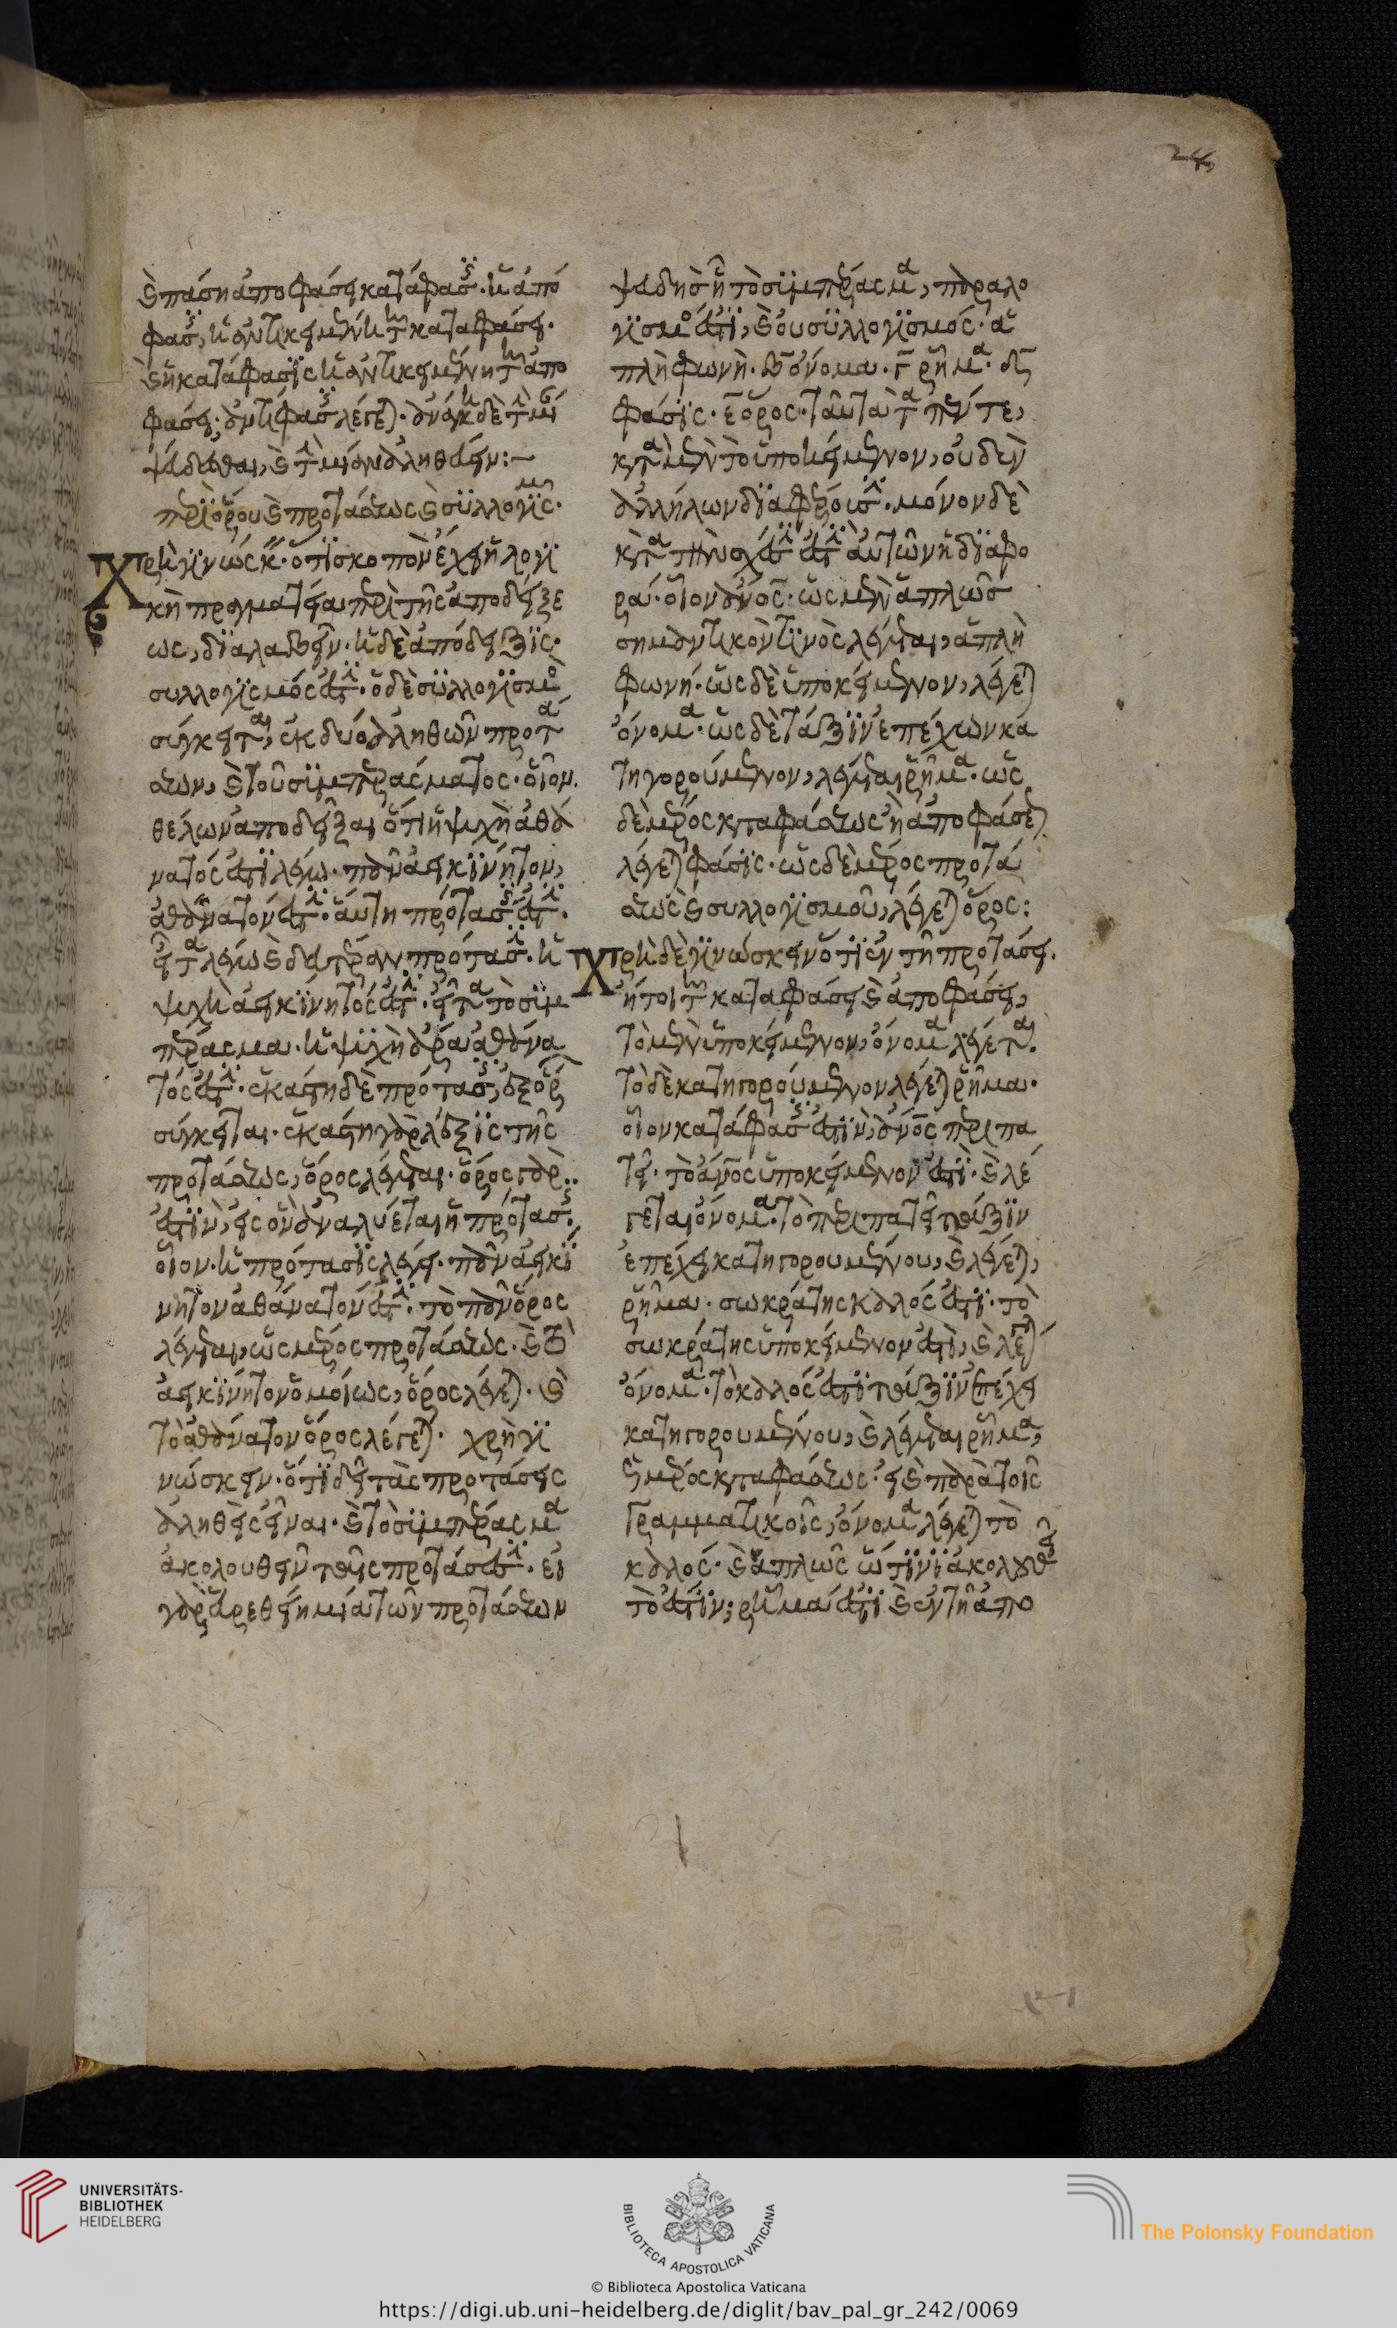 24
καὶ πάση ἀποφάσει κατάφασις· ἡ ἀπό
φασις, ἡ ἀντικειμένη τῆ καταφάσει·
καὶ ἡ κατάφασις ἡ ἀντικειμένη τῆ ἀπο
φάσει, ἀντίφασις λέγεται· ἀνάγκη δὲ τὴν μίαν
ψεύδεσθαι, καὶ τὴν μίαν ἀληθεύειν:
περὶ ὅρου καὶ προτάσεως καὶ συλλογισμοῦ·
Χρὴ γινώσκειν· ὅτι σκοπὸν ἔχει ἡ λογι
κὴ πραγματεία περὶ τῆς ἀποδείξε
ως, διαλαβεῖν· ἡ δὲ ἀπόδειξις·
συλλογισμός ἐστι· ὁ δὲ συλλογισμὸς
σύγκειται, ἐκ δύο ἀληθῶν προτά
σεων, καὶ τοῦ συμπεράσματος· οἷον·
θέλων ἀποδεῖξαι ὅτι ἡ ψυχὴ ἀθά
νατός ἐστι λέγω· πᾶν ἀεικίνητον,
ἀθάνατόν ἐστι· αὕτη πρότασίς ἐστι·
εἶτα λέγω καὶ δευτέραν πρότασιν· ἡ
ψυχὴ ἀεικίνητός ἐστι· εἶτα τὸ συμ
πέρασμα· ἡ ψυχὴ ἄρα ἀθάνα
τός ἐστι· ἑκάστη δὲ πρότασις, ἐξ ὅρων
σύγκειται· ἑκάστη γὰρ λέξις τῆς
προτάσεως, ὅρος λέγεται· ὅρος γάρ
ἐστιν, εἰς ὃν ἀναλύεται ἡ πρότασις·
οἷον· ἡ πρότασις λέγει· πᾶν ἀεικί
νητον ἀθάνατόν ἐστι· τὸ πᾶν ὅρος
λέγεται, ὡς μέρος προτάσεως· καὶ τὸ
ἀεικίνητον ὁμοίως, ὅρος λέγεται· καὶ
τὸ ἀθάνατον ὅρος λέγεται· χρὴ γι
νώσκειν· ὅτι δεῖ τὰς προτάσεις
ἀληθεῖς εἶναι· καὶ τὸ συμπέρασμα
ἀκολουθεῖν ταῖς προτάσεσι· εἰ
γὰρ εὑρεθείη μία τῶν προτάσεων
ψευδὴς ἢ τὸ συμπέρασμα, παραλο
γισμός ἐστι, καὶ οὐ συλλογισμός· ἁ
πλὴ φωνή· β ὄνομα· γ ῥῆμα· δ
φάσις· ε ὅρος· ταῦτα τὰ πέντε,
κατὰ μὲν τὸ ὑποκείμενον, οὐδὲν
ἀλλήλων διαφέρουσι· μόνον δὲ
κατὰ τὴν σχέσιν ἐστι αὐτῶν ἡ διαφο
ρά· οἷον ἄνος· ὡς μὲν ἁπλῶς
σημαντικόν τινος λέγεται, ἁπλὴ
φωνή· ὡς δὲ ὑποκείμενον, λέγεται
ὄνομα· ὡς δὲ τάξιν ἐπέχων κα
τηγορούμενον, λέγεται ῥῆμα· ὡς
δὲ μέρος καταφάσεως ἢ ἀποφάσεως
λέγεται φάσις· ὡς δὲ μέρος προτά
σεως καὶ συλλογισμοῦ, λέγεται ὅρος:
Χρὴ δὲ γινώσκειν ὅτι ἐν τῆ προτάσει·
ἤτοι τῆ καταφάσει καὶ ἀποφάσει,
τὸ μὲν ὑποκείμενον, ὄνομα λέγεται·
τὸ δὲ κατηγορούμενον λέγεται ῥῆμα·
οἷον κατάφασίς ἐστιν, ἄνος περιπα
τεῖ· τὸ ἄνος ὑποκείμενον ἐστι· καὶ λέ
γεται ὄνομα· τὸ περιπατεῖ τάξιν
ἐπέχει κατηγορουμένου, καὶ λέγεται,
ῥῆμα· σωκράτης καλός ἐστι· τὸ
σωκράτης ὑποκείμενον ἐστι, καὶ λέγεται
ὄνομα· τὸ καλός ἐστι τάξιν ἐπέχει
κατηγορουμένου, καὶ λέγεται ῥῆμα,
ὡς μέρος καταφάσεως· εἰ καὶ παρὰ τοῖς
γραμματικοῖς, ὄνομα λέγεται τὸ
καλός· καὶ ἁπλῶς ᾧτινι ἀκολουθεῖ
τὸ ἐστίν, ῥῆμά ἐστι καὶ ἐν τῆ ἀπο
UNIVERSITÄTS-
BIBLIOTHEK
HEIDELBERG
BIBLIOTECA APOSTOLICA VATICANA
The Polonsky Foundation
© Biblioteca Apostolica Vaticana
https://digi.ub.uni-heidelberg.de/diglit/bav_pal_gr_242/0069